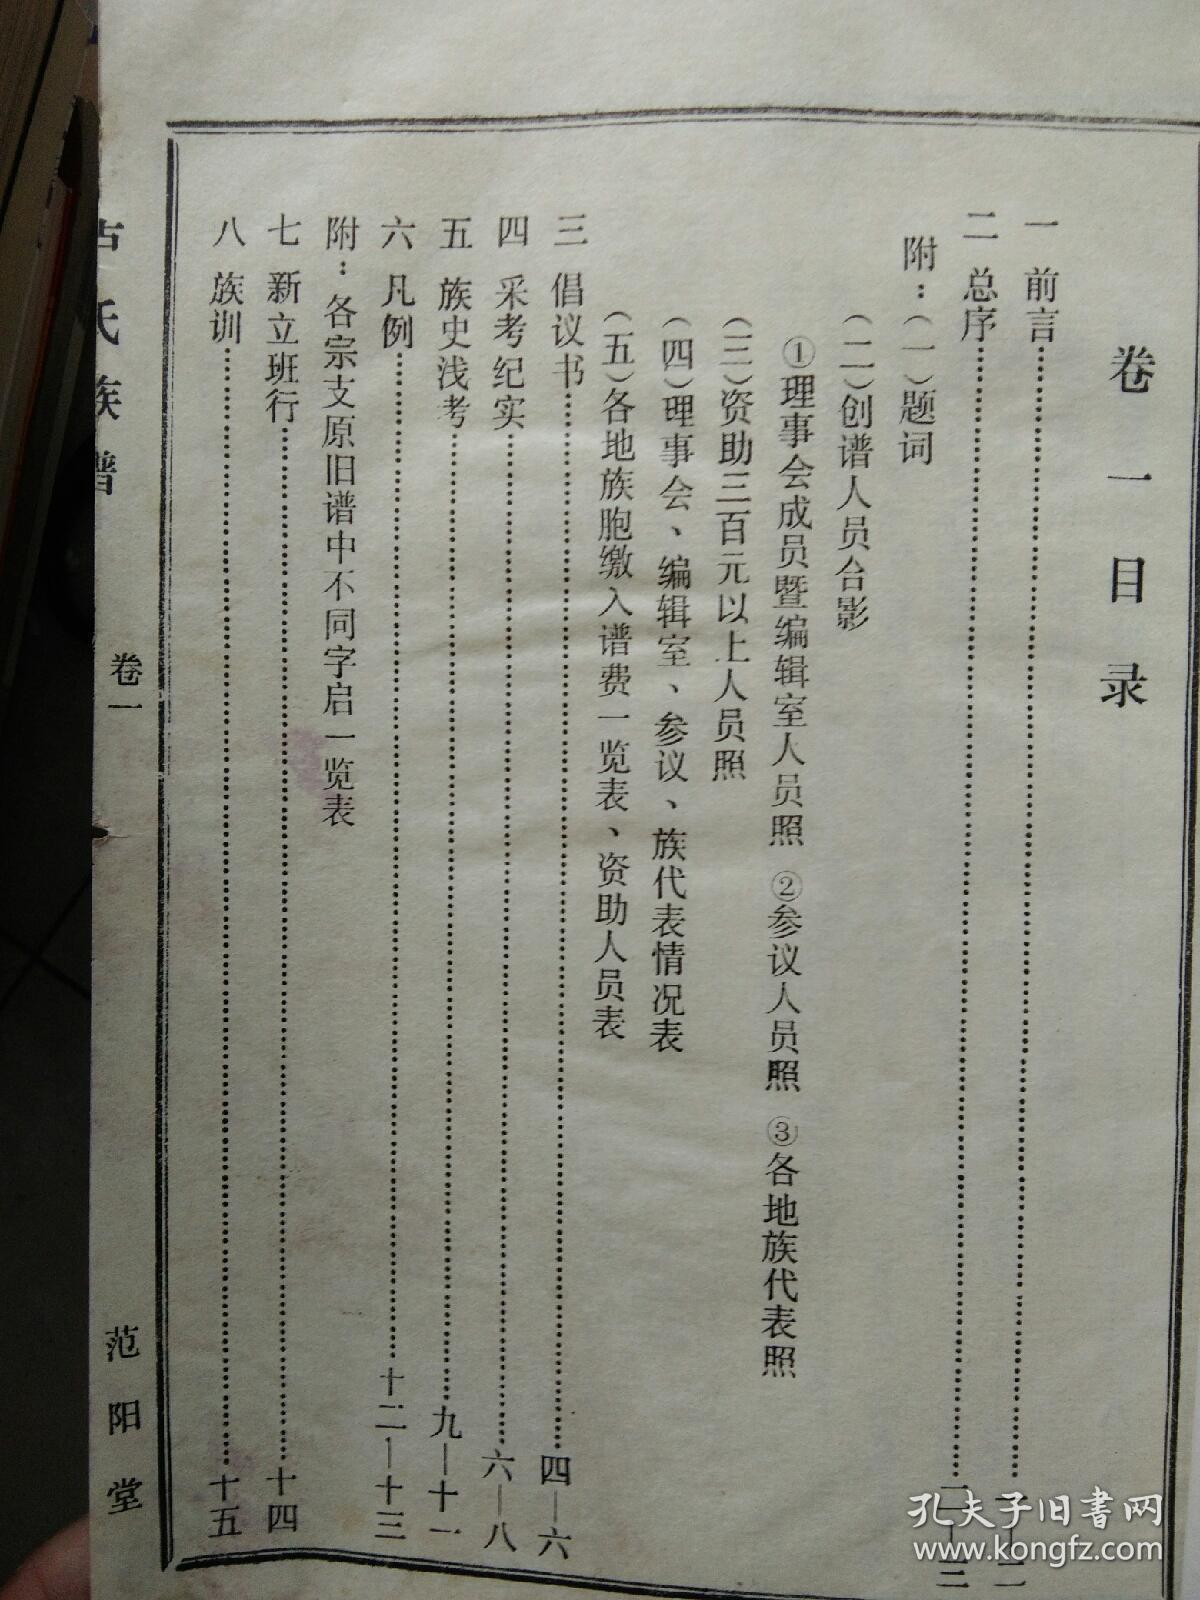 卷一目录
一 前言……一—二
二 总序……二—三
附：(一)题词
(二)创谱人员合影
①理事会成员暨编辑室人员照 ②参议人员照 ③各地族代表照
(三)资助三百元以上人员照
(四)理事会、编辑室、参议、族代表情况表
(五)各地族胞缴入谱费一览表、资助人员表
三 倡议书……四—六
四 采考纪实……六—八
五 族史浅考……九—十一
六 凡例……十二—十三
附：各宗支原旧谱中不同字启一览表
七 新立班行……十四
八 族训……十五
氏族谱
卷一
范阳堂
孔夫子旧书网
www.kongfz.com